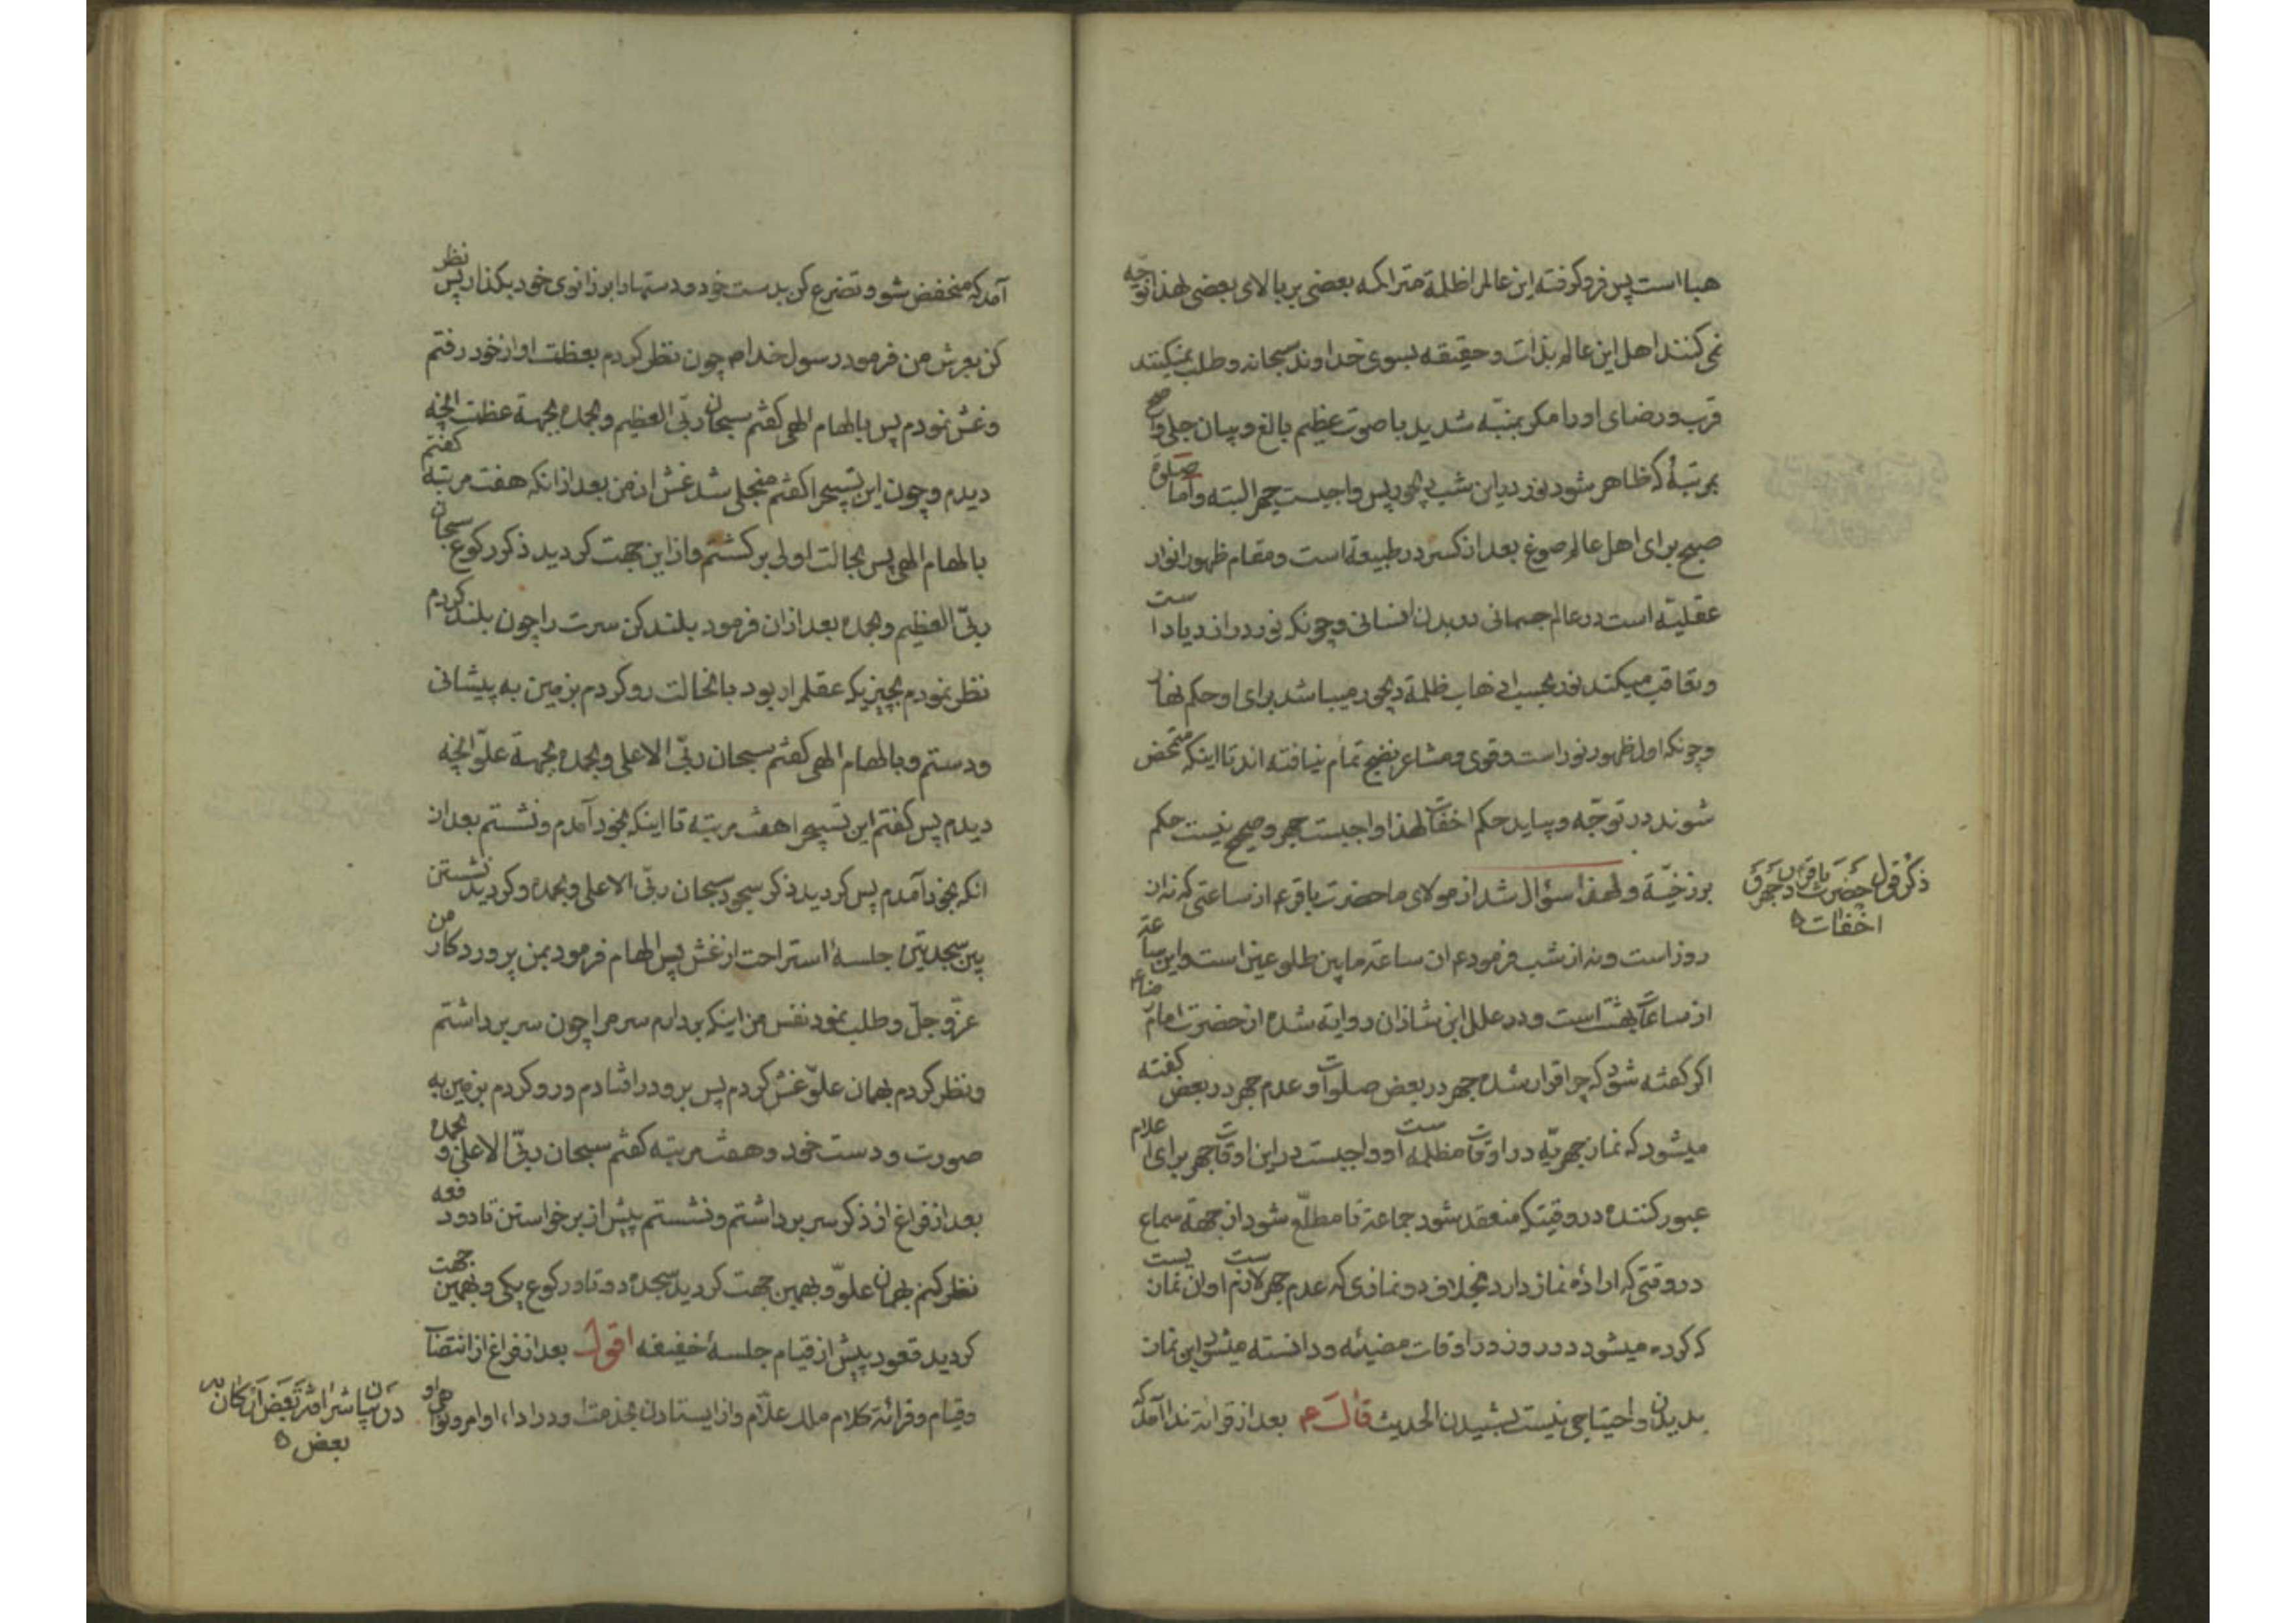 هبا است پس فرو کرفته این عالم را ظلمة متراکمه بعضی بر بالای بعضی لهذا توجّه
نمی کنند اهل این عالم بذات و حقیقه بسوی خداوند سبحانه و طلب نمیکنند
قرب و رضای او را مکر بمنبّه شدید با صوت عظیم بالغ و بیان جلی واضح
بمرتبهٔ که ظاهر شود نور در این شب دیجور پس واجبست جهر البته و اما صلوة
صبح برای اهل عالم صوغ بعد از کسر در طبیعة است و مقام ظهور انوار
عقلیّه است در عالم جسمانی در بدن انسانی و چونکه نور در ازدیاد است
و تعاقب میکند نور بحسب اذهاب ظلمة دیجور میباشد برای او حکم نهار
و چونکه اول ظهور نور است و قوی و مشاعر نضج تمام نیافته اند تا اینکه متمحض
شوند در توجّه و بیاید حکم اخفات لهذا واجبست جهر و صحیح نیست حکم
برزخیّة و لهذا سؤال شد از مولای ما حضرت باقر ع از ساعتی که نه از
روز است و نه از شب فرمود ع ان ساعة ما بین طلوعین است و این ساعة
از ساعات بهشت است و در علل ابن شاذان روایة شده از حضرت امام رضا ع
اکر کفته شود که چرا قرار شده جهر در بعض صلوات و عدم جهر در بعض کفته
میشود که نماز جهریّه در اوقات مظلمه است و واجبست در این اوقات جهر برای اعلام
عبور کننده در وقتیکه منعقد شود جماعة تا مطلّع شود از جهة سماع
در وقتی که ارادهٔ نماز دارد بخلاف دو نمازی که عدم جهر لازم است و ان نمازیست
که کرده میشود در روز در اوقات مضیئه و دانسته میشود این نماز
بدیدن و احتیاجی نیست بشنیدن الحدیث قال ع بعد از قرائة ندا آمد که
ذکر قول حضرت باقر در جهر و
اخفات ه
آمد که منخفض شو و تضرع کن بدست خود و دستها را بر زانوی خود بکذار پس نظر
کن بعرش من فرمود رسول خدا ص چون نظر کردم بعظمت او از خود رفتم
و غش نمودم پس بالهام الهی کفتم سبحان ربّی العظیم و بحمده بجهة عظمت انچه
دیدم و چون این تسبیح را کفتم منجلی شد غش از من بعد از انکه هفت مرتبه کفتم
بالهام الهی پس بحالت اولی بر کشتم و از این جهت کردید ذکر رکوع سبحان
ربّی العظیم و بحمده بعد از ان فرمود بلند کن سرت را چون بلند کردم
نظر نمودم بچیزیکه عقلم را ربود با نحالت رو کردم بزمین به پیشانی
و دستم و بالهام الهی کفتم سبحان ربّی الاعلی و بحمده بجهة علوّ انچه
دیدم پس کفتم این تسبیح را هفت مرتبه تا اینکه بخود آمدم و نشستم بعد از
انکه بخود آمدم پس کردید ذکر سجود سبحان ربّی الاعلی و بحمده و کردید نشستن
بین سجدتین جلسهٔ استراحت از غش پس الهام فرمود بمن پروردکار من
عزّ و جلّ و طلب نمود نفس من اینکه بردارم سر مرا چون سر برداشتم
و نظر کردم بهمان علوّ غش کردم پس برو در افتادم و رو کردم بزمین به
صورت و دست خود و هفت مرتبه کفتم سبحان ربّی الاعلی و بحمده
بعد از فراغ از ذکر سر برداشتم و نشستم پیش از برخواستن تا دو دفعه
نظر کنم بهمان علوّ و بهمین جهت کردید سجده دو تا و رکوع یکی و بهمین جهت
کردید قعود پیش از قیام جلسهٔ خفیفه اقول بعد از فراغ از انتصاب
و قیام و قرائة کلام ملک علّام و از ایستادن بخدمت و در اداء اوامر و نواهی او
در بیان شرافة بعض ارکان بر
بعض ه